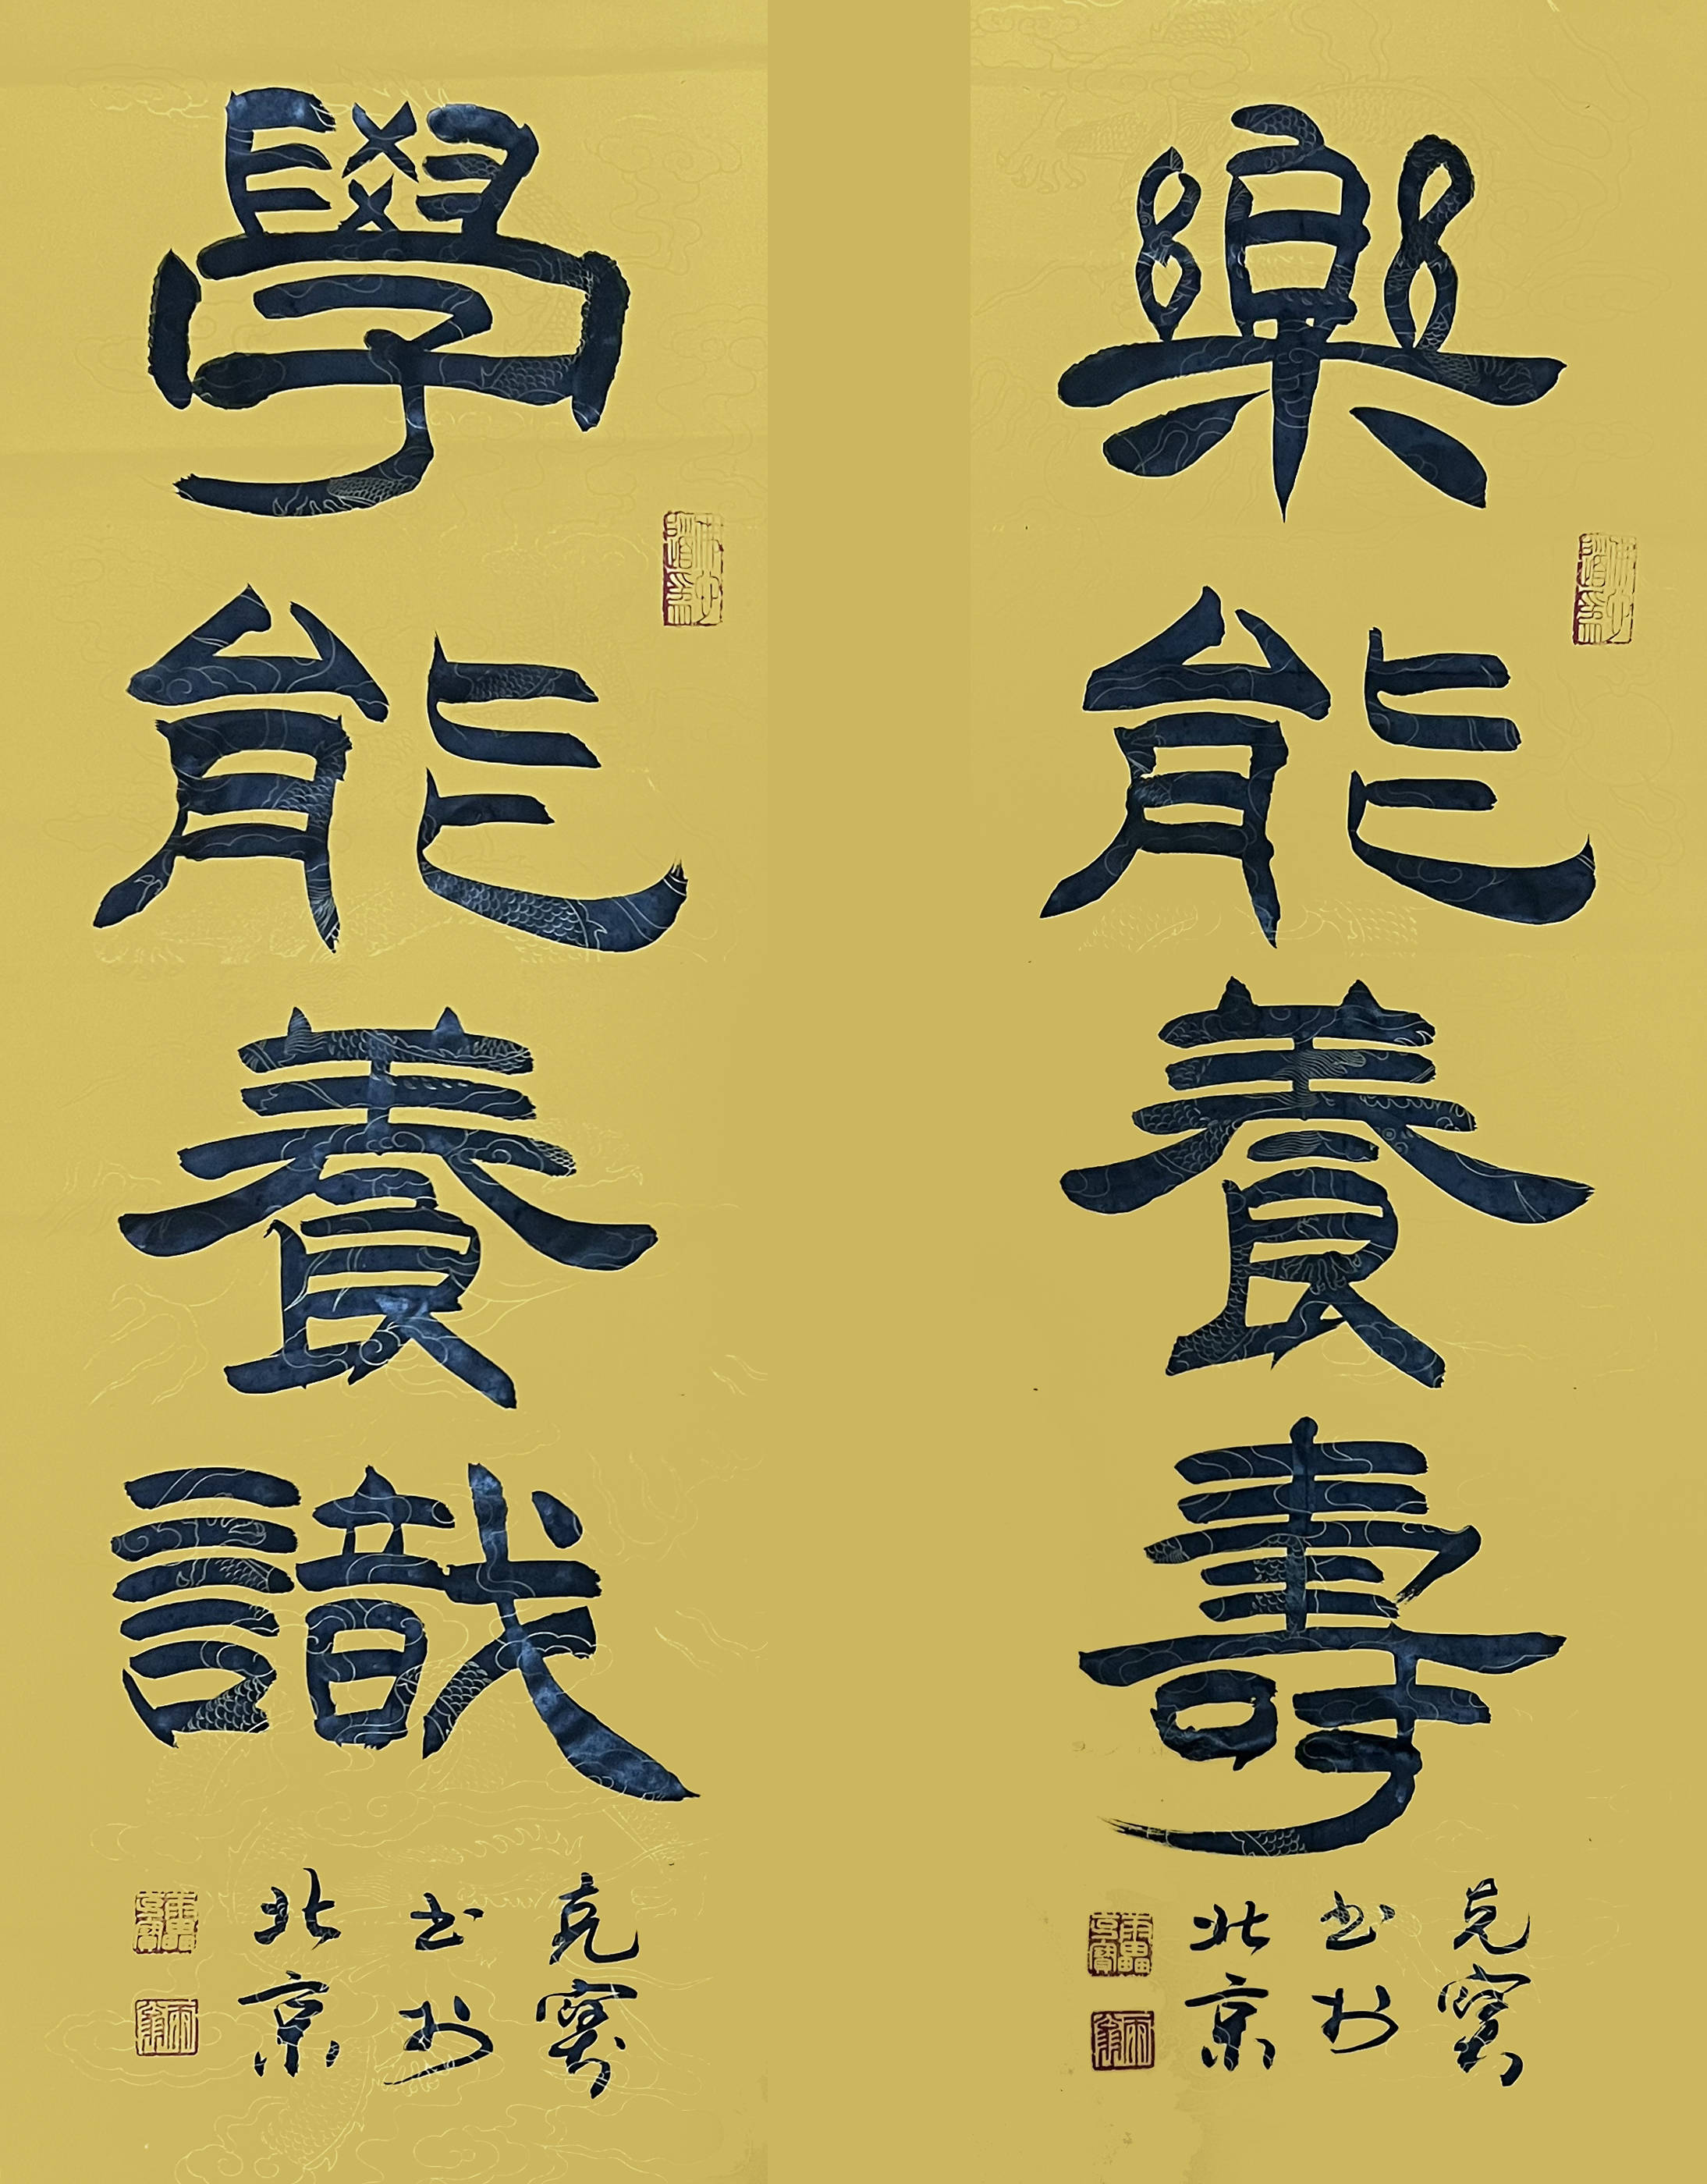 樂能養壽
克寶
書於
北京
學能養識
克寶
書於
北京